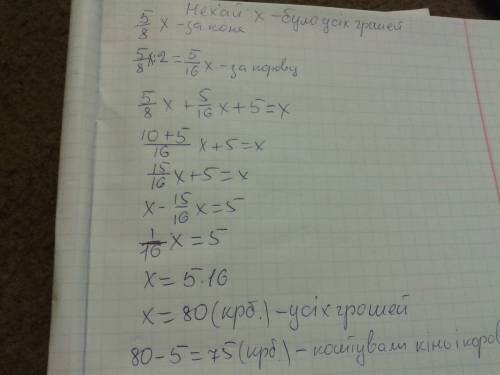 Нехай x - було усіх грошей
5/8 x - за коня
5/8 x : 2 = 5/16 x - за корову
5/8 x + 5/16 x + 5 = x
10+5/16 x + 5 = x
15/16 x + 5 = x
x - 15/16 x = 5
1/16 x = 5
x = 5 · 16
x = 80 (крб.) - усіх грошей
80 - 5 = 75 (крб.) - коштували кінь і коров